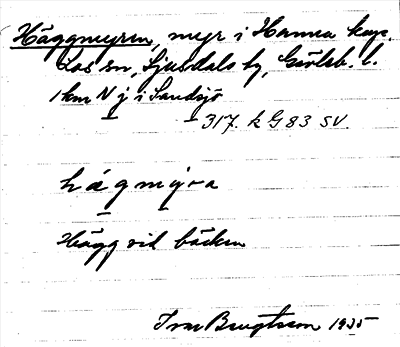 Häggmyren, myr i Hamra kap.
Los sn, Ljusdals tg, Gävleb. l.
1 km N j i Sandsjö
317. k G 83 SV.
hägmýra
Hägg vid bäcken
Ivar Bengtsson 1935